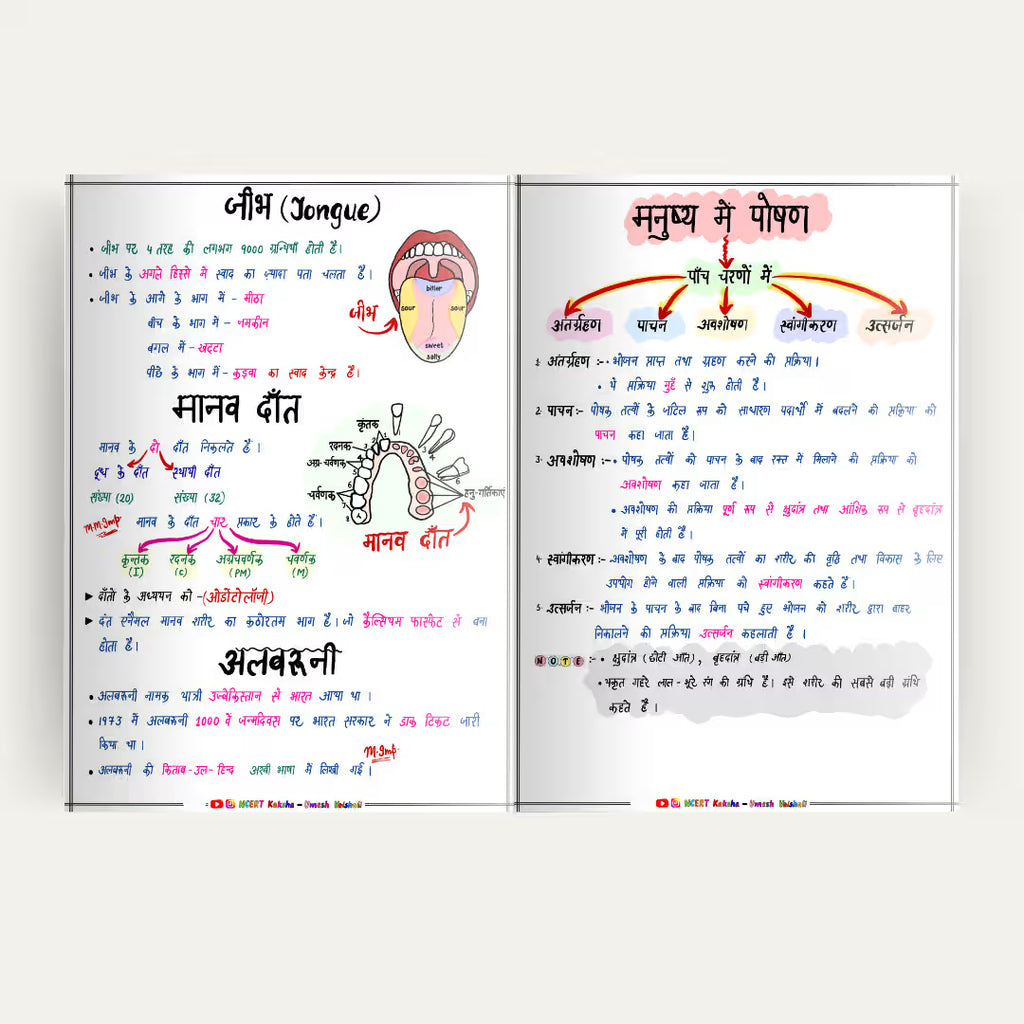 जीभ (Tongue)
• जीभ पर 4 तरह की लगभग 9000 ग्रन्थियाँ होती है।
• जीभ के अगले हिस्से में स्वाद का ज़्यादा पता चलता है।
• जीभ के आगे के भाग में - मीठा
बीच के भाग में - नमकीन
बगल में - खट्टा
पीछे के भाग में - कड़वा का स्वाद केन्द्र है।
जीभ
bitter
sour
sour
sweet
salty
मानव दाँत
मानव के दो दाँत निकलते हैं।
दूध के दाँत
स्थायी दाँत
संख्या (20)
संख्या (32)
M.M.Imp
मानव के दाँत चार प्रकार के होते हैं।
कृन्तक
(I)
रदनक
(C)
अग्रचवर्णक
(PM)
चवर्णक
(M)
कृंतक
रदनक
अग्र-चर्वणक
चर्वणक
हनु-गर्तिकाएं
मानव दाँत
► दाँतो के अध्ययन को -(ओडोंटोलॉजी)
► दंत एनैमल मानव शरीर का कठोरतम भाग है। जो कैल्सियम फास्फेट से बना
होता है।
अलबरूनी
• अलबरूनी नामक यात्री उज्बेकिस्तान से भारत आया था।
• 1973 में अलबरूनी 1000 वें जन्मदिवस पर भारत सरकार ने डाक टिकट जारी
किया था।
M.Imp
• अलबरूनी की किताब-उल-हिन्द अरबी भाषा में लिखी गई।
NCERT Kaksha – Umesh Vaishali
मनुष्य में पोषण
पाँच चरणों में-
अंतर्ग्रहण
पाचन
अवशोषण
स्वांगीकरण
उत्सर्जन
1. अंतर्ग्रहण :- • भोजन प्राप्त तथा ग्रहण करने की प्रक्रिया।
• ये प्रक्रिया मुहँ से शुरू होती है।
2. पाचन:- पोषक तत्वों के जटिल रूप को साधारण पदार्थो में बदलने की प्रक्रिया को
पाचन कहा जाता है।
3. अवशोषण :- • पोषक तत्वों को पाचन के बाद रक्त में मिलाने की प्रक्रिया को
अवशोषण कहा जाता है।
• अवशोषण की प्रक्रिया पूर्ण रूप से क्षुदांत्र तथा आंशिक रूप से बृहदांत्र
में पूरी होती है।
4. स्वांगीकरण:- अवशोषण के बाद पोषक तत्वों का शरीर की वृद्दि तथा विकास के लिए
उपयोग होने वाली प्रक्रिया को स्वांगीकरण कहते है।
5. उत्सर्जन:- भोजन के पाचन के बाद बिना पचे हुए भोजन को शरीर द्वारा बाहर
निकालने की प्रक्रिया उत्सर्जन कहलाती है।
NOTE :- • क्षुदांत्र (छोटी आँत), बृहदांत्र (बड़ी आँत)
• यकृत गहरे लाल-भूरे रंग की ग्रंथि है। इसे शरीर की सबसे बड़ी ग्रंथि
कहते है।
NCERT Kaksha – Umesh Vaishali